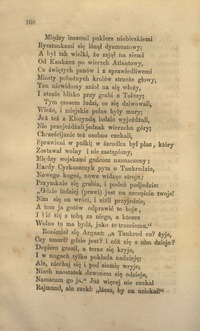 168
Między inszemi puklerz niebieskiemi
Rysunkami się lśnął dyamentowy;
A był tak wielki, że zajął na ziemi
Od Kaukazu po wierzch Atlantowy,
Co świętych panów i z sprawiedliwemi
Miasty pobożnych królów strzeże głowy,
Ten niewidomy anioł na się włoży,
I stanie blisko przy grabi z Tolozy.
Tym czasem ludzi, co się dziwowali,
Wieże, i miejskie pełne były mury;
Już też z Klorynda ludzie wyjeżdżali,
Nie przejeżdżali jednak wierzchu góry;
Chrześcijanie też osobno czekali,
Sprawieni w pułki; w środku był plac, który
Zostawał wolny i nie zastąpiony,
Między wojskami gońcom naznaczony;
Hardy Cyrkaszczyk pyta o Tankredzie,
Nowego kogoś, nowe widząc stroje;
Przymknie się grabia, i podeń podjedzie:
„Gdzie indziej (prawi) jest na szczęście twoje!
Nim się on wróci, i niźli przyjedzie,
A tom ja gotów odprawić te boje,
I iść się z tobą za niego, a ktemu
Wolno to ma bydź, jako to trzeciemu.“
Rozśmiał się Argant: „a Tankred co? żyje,
Czy umarł? gdzie jest? i cóż się z nim dzieje?
Dopiero groził, a teraz się kryje,
I w nogach tylko pokłada nadzieję;
Ale, niechaj się i pod ziemię wryje,
Niech naostatek dowcipnie się odzieje,
Naznaczam go ja.“ Już więcej nie czekał
Rajmund, ale rzekł: „łżesz, by on uciekał“